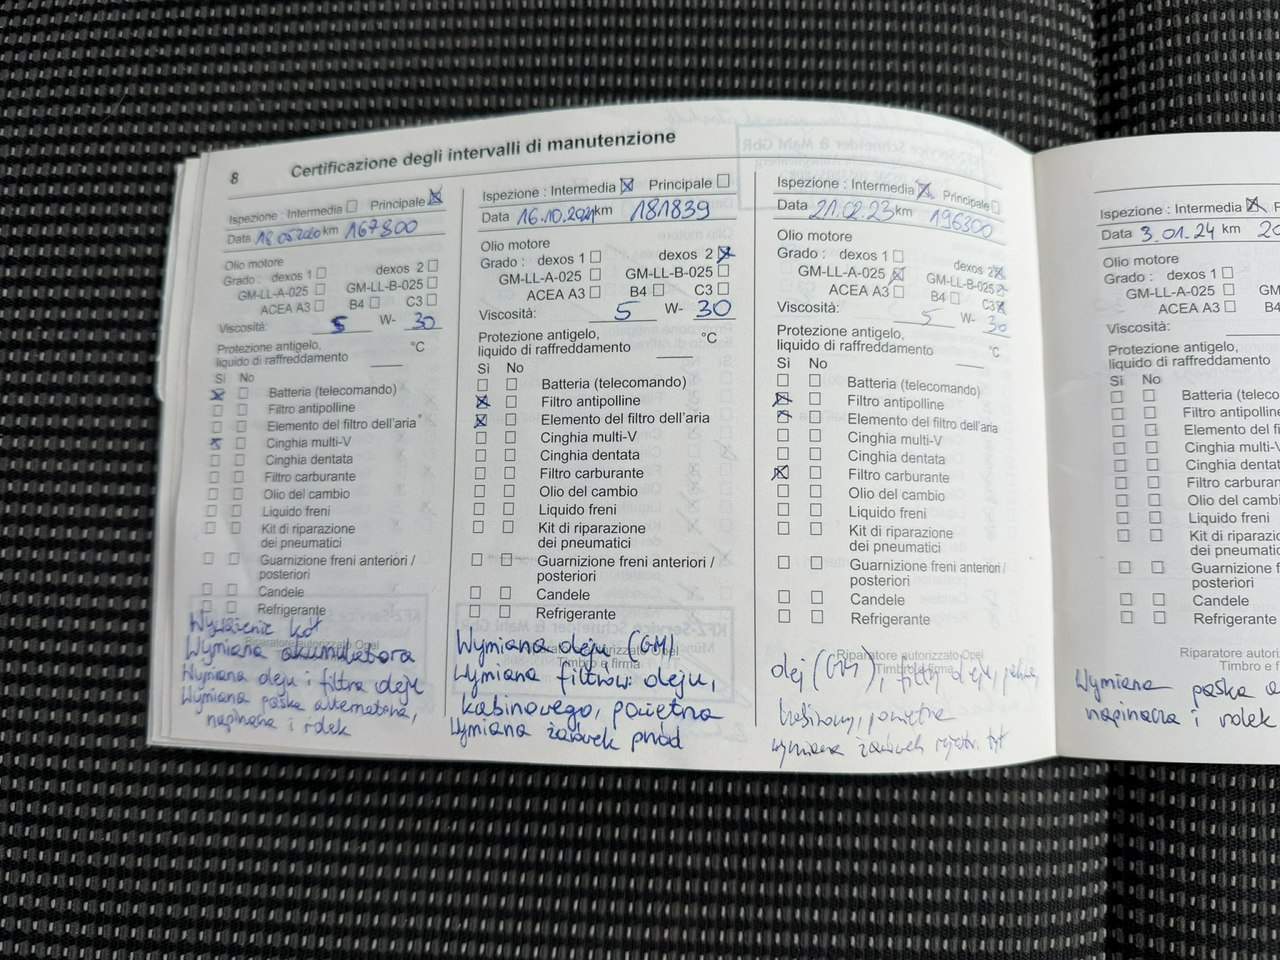 8 Certificazione degli intervalli di manutenzione
Ispezione : Intermedia Principale
Data 18.05.2020 km 167800
Olio motore
Grado : dexos 1 dexos 2
GM-LL-A-025 GM-LL-B-025
ACEA A3 B4 C3
Viscosità: 5 W- 30
Protezione antigelo,
liquido di raffreddamento °C
Sì No
Batteria (telecomando)
Filtro antipolline
Elemento del filtro dell'aria
Cinghia multi-V
Cinghia dentata
Filtro carburante
Olio del cambio
Liquido freni
Kit di riparazione
dei pneumatici
Guarnizione freni anteriori /
posteriori
Candele
Refrigerante
Riparatore autorizzato Opel
Wyważenie kół
Wymiana akumulatora
Wymiana oleju i filtra oleju
Wymiana paska alternatora,
napinacza i rolek
Ispezione : Intermedia Principale
Data 16.10.2021 km 181839
Olio motore
Grado : dexos 1 dexos 2
GM-LL-A-025 GM-LL-B-025
ACEA A3 B4 C3
Viscosità: 5 W- 30
Protezione antigelo,
liquido di raffreddamento °C
Sì No
Batteria (telecomando)
Filtro antipolline
Elemento del filtro dell'aria
Cinghia multi-V
Cinghia dentata
Filtro carburante
Olio del cambio
Liquido freni
Kit di riparazione
dei pneumatici
Guarnizione freni anteriori /
posteriori
Candele
Refrigerante
Wymiana oleju (GM)
Riparatore autorizzato Opel
Timbro e firma
Wymiana filtrów: oleju,
kabinowego, powietrza
Wymiana żarówek przód
Ispezione : Intermedia Principale
Data 21.02.23 km 196300
Olio motore
Grado : dexos 1 dexos 2
GM-LL-A-025 GM-LL-B-025
ACEA A3 B4 C3
Viscosità: 5 W- 30
Protezione antigelo,
liquido di raffreddamento °C
Sì No
Batteria (telecomando)
Filtro antipolline
Elemento del filtro dell'aria
Cinghia multi-V
Cinghia dentata
Filtro carburante
Olio del cambio
Liquido freni
Kit di riparazione
dei pneumatici
Guarnizione freni anteriori /
posteriori
Candele
Refrigerante
Riparatore autorizzato Opel
Timbro e firma
olej (GM), filtry oleju, paliwa,
kabinowy, powietrza
wymiana żarówek rejestr. tył
Ispezione : Intermedia P
Data 3.01.24 km 20
Olio motore
Grado : dexos 1
GM-LL-A-025 GM
ACEA A3
Viscosità:
Protezione antigelo,
liquido di raffreddamento
Sì No
Batteria (teleco
Filtro antipolline
Elemento del fi
Cinghia multi-V
Cinghia dentat
Filtro carburan
Olio del cambio
Liquido freni
Kit di riparazio
dei pneumatic
Guarnizione f
posteriori
Candele
Refrigerante
Riparatore a
Timbro e
Wymiana paska a
napinacza i rolek